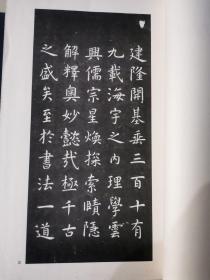 建隆開基垂三百十有
九載海宇之内理學雲
興儒宗星煥探索賾隱
解釋奥妙懿哉極千古
之盛矣至於書法一道